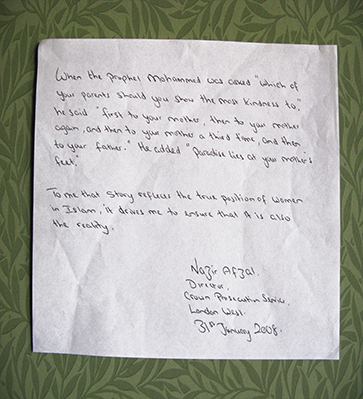 When the prophet Mohammed was asked "which of
your parents should you show the most kindness to,"
he said "first to your mother, then to your mother
again, and then to your mother a third time, and then
to your father." He added "paradise lies at your mother's
feet."
To me that story reflects the true position of women
in Islam, it drives me to ensure that it is also
the reality.
Nazir Afzal.
Director,
Crown Prosecution Service,
London West.
31st January 2008.